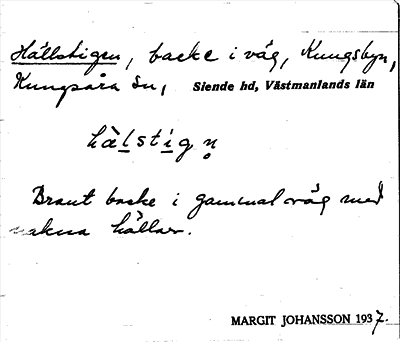 Hällstigen, backe i väg, Kungsbyn,
Kungsåra sn, Siende hd, Västmanlands län
hàlstigṇ
Brant backe i gammal väg med
nakna hällar.
MARGIT JOHANSSON 1937.